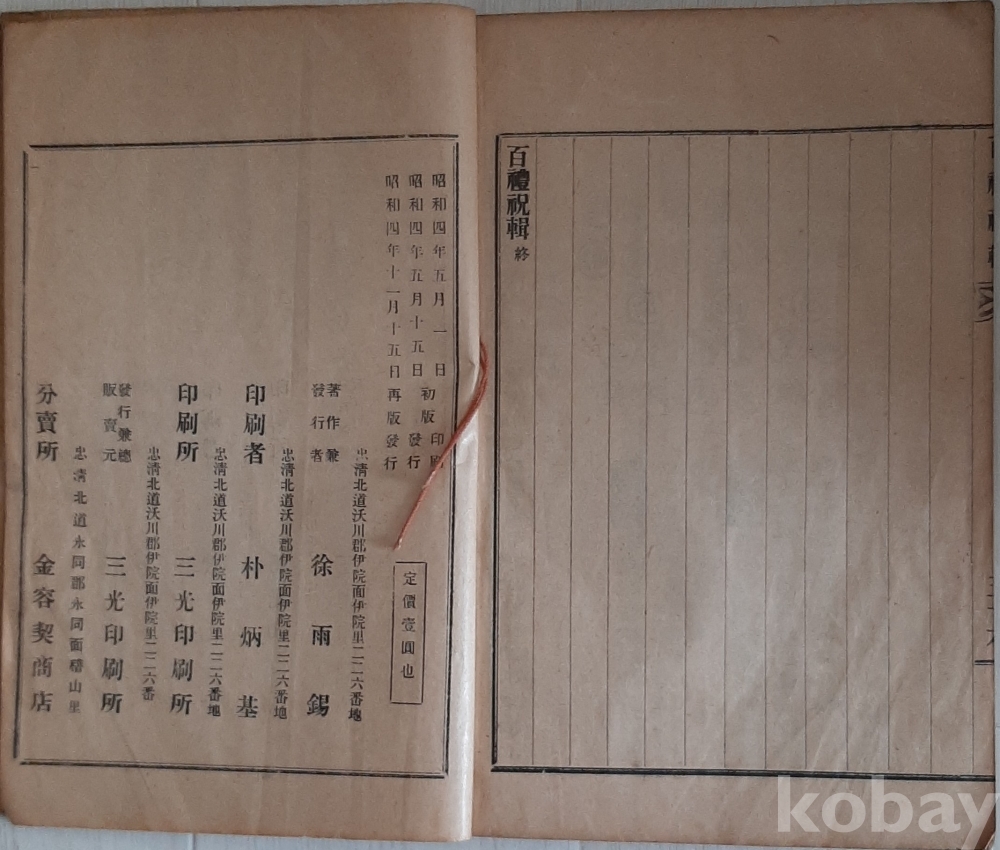 百禮祝輯 終
昭和四年五月一日初版印刷
昭和四年五月十五日發行
昭和四年十一月十五日再版發行
定價壹圓也
忠清北道沃川郡伊院面伊院里二二六番地
著作兼發行者 徐雨錫
忠清北道沃川郡伊院面伊院里二二六番地
印刷者 朴炳基
忠清北道沃川郡伊院面伊院里二二六番地
印刷所 三光印刷所
忠清北道沃川郡伊院面伊院里二二六番
發行兼總販賣元 三光印刷所
忠清北道永同郡永同面稽山里
分賣所 金容契商店
kobay